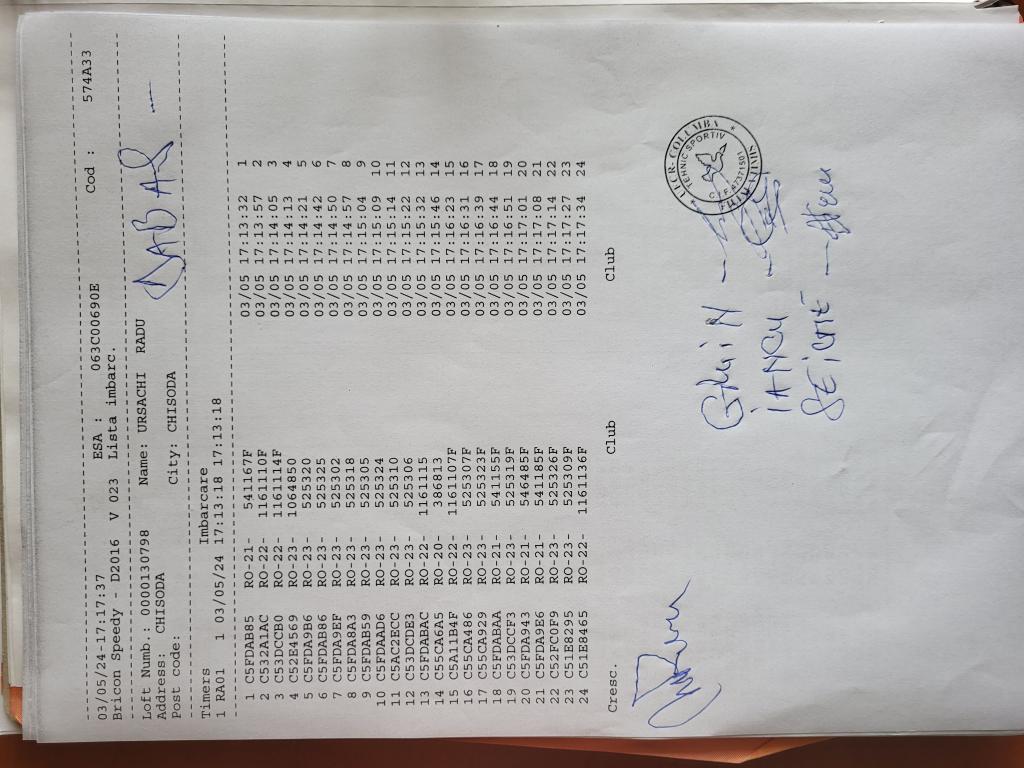 03/05/24-17:17:37 ESA : 063C00690E Cod : 574A33
Bricon Speedy - D2016 V 023 Lista imbarc.
Loft Numb.: 0000130798 Name: URSACHI RADU
Address: CHISODA City: CHISODA
Post code:
DABAR
Timers Imbarcare
1 RA01 1 03/05/24 17:13:18 17:13:18
1 C5FDAB85 RO-21- 541167F 03/05 17:13:32 1
2 C532A1AC RO-22- 1161110F 03/05 17:13:57 2
3 C53DCCB0 RO-22- 1161114F 03/05 17:14:05 3
4 C52E4569 RO-23- 1064850 03/05 17:14:13 4
5 C5FDA9B6 RO-23- 525320 03/05 17:14:21 5
6 C5FDAB86 RO-23- 525325 03/05 17:14:42 6
7 C5FDA9EF RO-23- 525302 03/05 17:14:50 7
8 C5FDA8A3 RO-23- 525318 03/05 17:14:57 8
9 C5FDAB59 RO-23- 525305 03/05 17:15:04 9
10 C5FDAAD6 RO-23- 525324 03/05 17:15:09 10
11 C5AC2ECC RO-23- 525310 03/05 17:15:14 11
12 C53DCDE3 RO-23- 525306 03/05 17:15:22 12
13 C5FDABAC RO-22- 1161115 03/05 17:15:32 13
14 C55CA6A5 RO-20- 386813 03/05 17:15:46 14
15 C5A11B4F RO-22- 1161107F 03/05 17:16:23 15
16 C55CA486 RO-23- 525307F 03/05 17:16:31 16
17 C55CA929 RO-23- 525323F 03/05 17:16:39 17
18 C5FDABAA RO-21- 541155F 03/05 17:16:44 18
19 C53DCCF3 RO-23- 525319F 03/05 17:16:51 19
20 C5FDA943 RO-21- 546485F 03/05 17:17:01 20
21 C5FDA9E6 RO-21- 541185F 03/05 17:17:08 21
22 C52FC0F9 RO-23- 525326F 03/05 17:17:14 22
23 C51E8295 RO-23- 525309F 03/05 17:17:27 23
24 C51E8465 RO-22- 1161136F 03/05 17:17:34 24
Cresc. Club Club
IANCU
TEHNIC SPORTIV